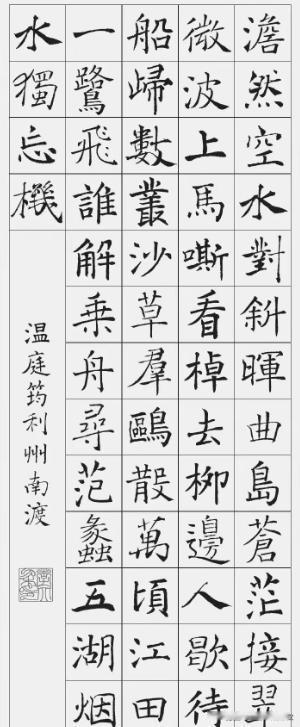 澹然空水對斜暉曲島蒼茫接翠
微波上馬嘶看棹去柳邊人歇待
船歸數叢沙草羣鷗散萬頃江田
一鷺飛誰解乗舟尋范蠡五湖烟
水獨忘機
温庭筠利州南渡